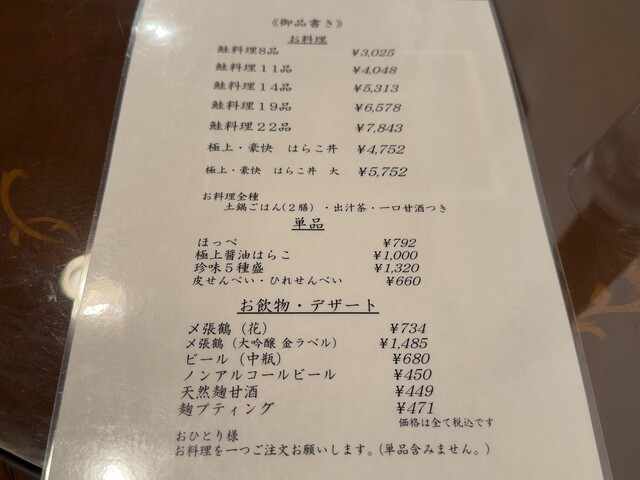 《御品書き》
お料理
鮭料理8品 ¥3,025
鮭料理11品 ¥4,048
鮭料理14品 ¥5,313
鮭料理19品 ¥6,578
鮭料理22品 ¥7,843
極上・豪快 はらこ丼 ¥4,752
極上・豪快 はらこ丼 大 ¥5,752
お料理全種
土鍋ごはん(2膳)・出汁茶・一口甘酒つき
単品
ほっぺ ¥792
極上醤油はらこ ¥1,000
珍味5種盛 ¥1,320
皮せんべい・ひれせんべい ¥660
お飲物・デザート
〆張鶴(花) ¥734
〆張鶴(大吟醸 金ラベル) ¥1,485
ビール(中瓶) ¥680
ノンアルコールビール ¥450
天然麹甘酒 ¥449
麹プティング ¥471
価格は全て税込です
おひとり様
お料理を一つご注文お願いします。(単品含みません。)